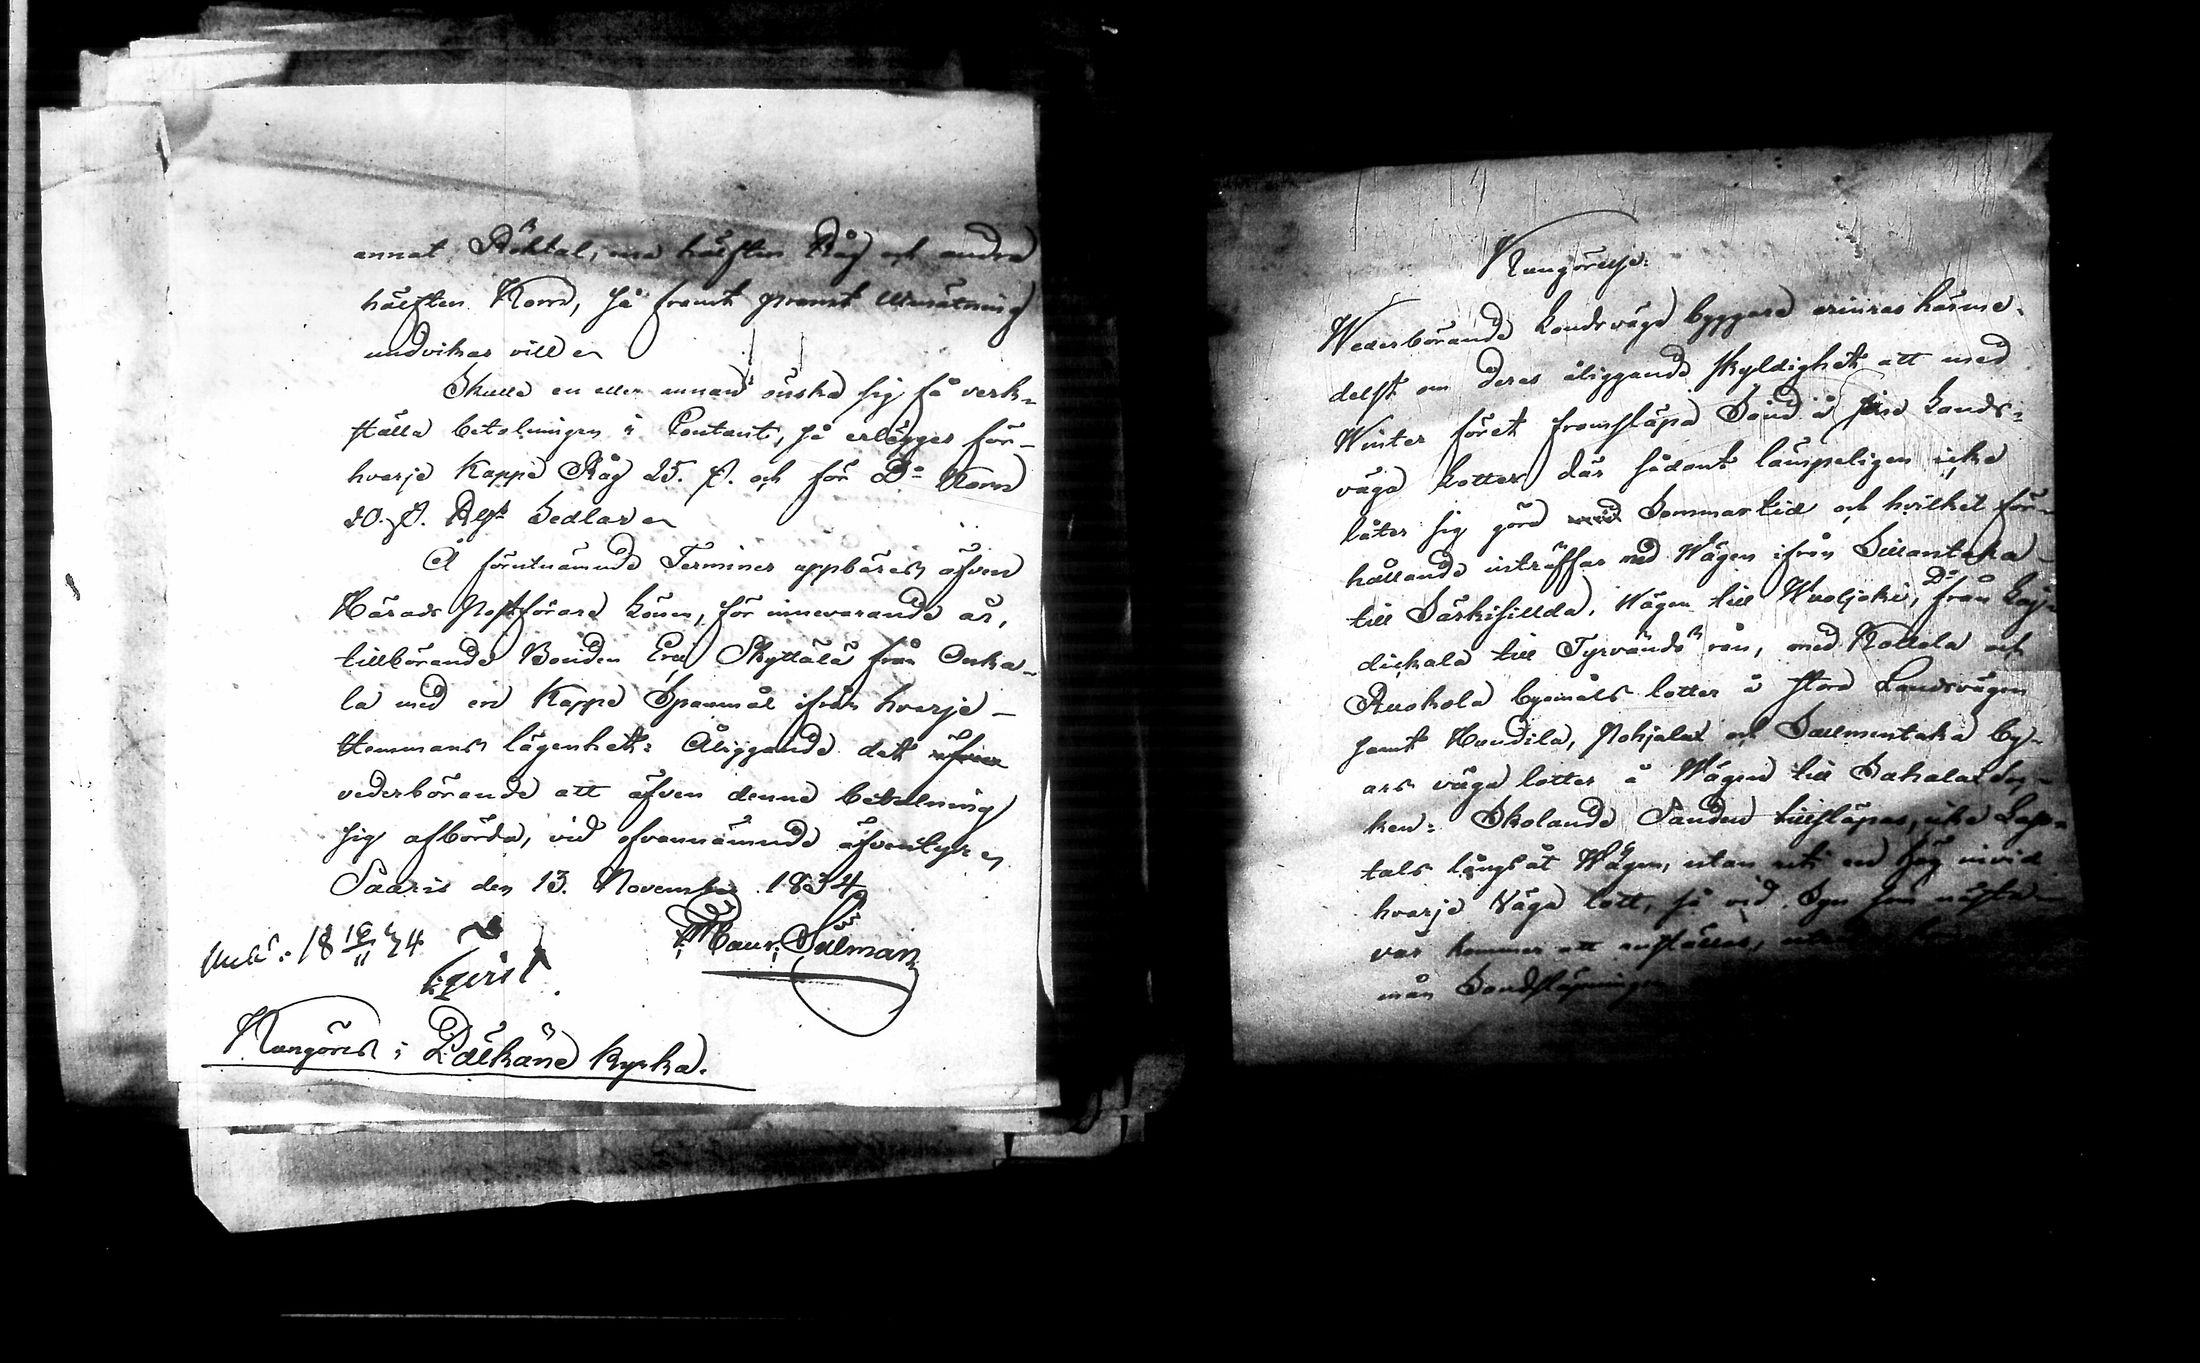 annat Röktal, ena hälften Råg och andra
hälften Korn, så framt promt Utmätning
undvikas vill en
Skulle en eller annan önska sig få verk-
ställa betalningen i Contant, så erlägges för-
hvarje Kappe Råg 25. β. och för D:o Korn
20. β. Rgs Sedlar en
Å förutnämnde Terminer uppbäres äfven
Härads Postförare Lönen, för innevarande år,
tillhörande Bonden Eric Skyttälä från Onka-
la med en Kappe Spanmål ifrån hvarje-
Hemmans lägenhet: Åliggande det äfven
vederbörande att äfven denne betalning
sig afbörda, vid ofvannämnde äfventyr en
Saaris den 13. November 1834
Maur: Silman
18 16/11 34
Kungöres i Pälkäne kyrka.
Kungörelse.
Wederbörande Landsväga byggare erinras härme-
delst om deras åliggande skyldighet att med
Winter föret framsläpa Sand å sina Lands-
väga Lotter där sådant lämpeligen icke
låter sig göra med Sommartid och hvilket för-
hållande inträffar med Wägen ifrån Sillantaka
till Särkisillda, Wägen till Wuoljoki, D:o från Lai-
dickala till Tyrvändö rån, med Kollola och
Ruokola byemåls lotter å stora Landsvägen
samt Haudila, Pohjala och Salmentaka by-
ars väga lotter å Wägen till Sahalax
ken: Skolande Sanden tillsläpas, icke
tals långsåt Wägen, utan uti en hög invid
hvarje Väga lott, så vid Syn som nästa
vår kommer att anställas,
mån Sandsläpningen